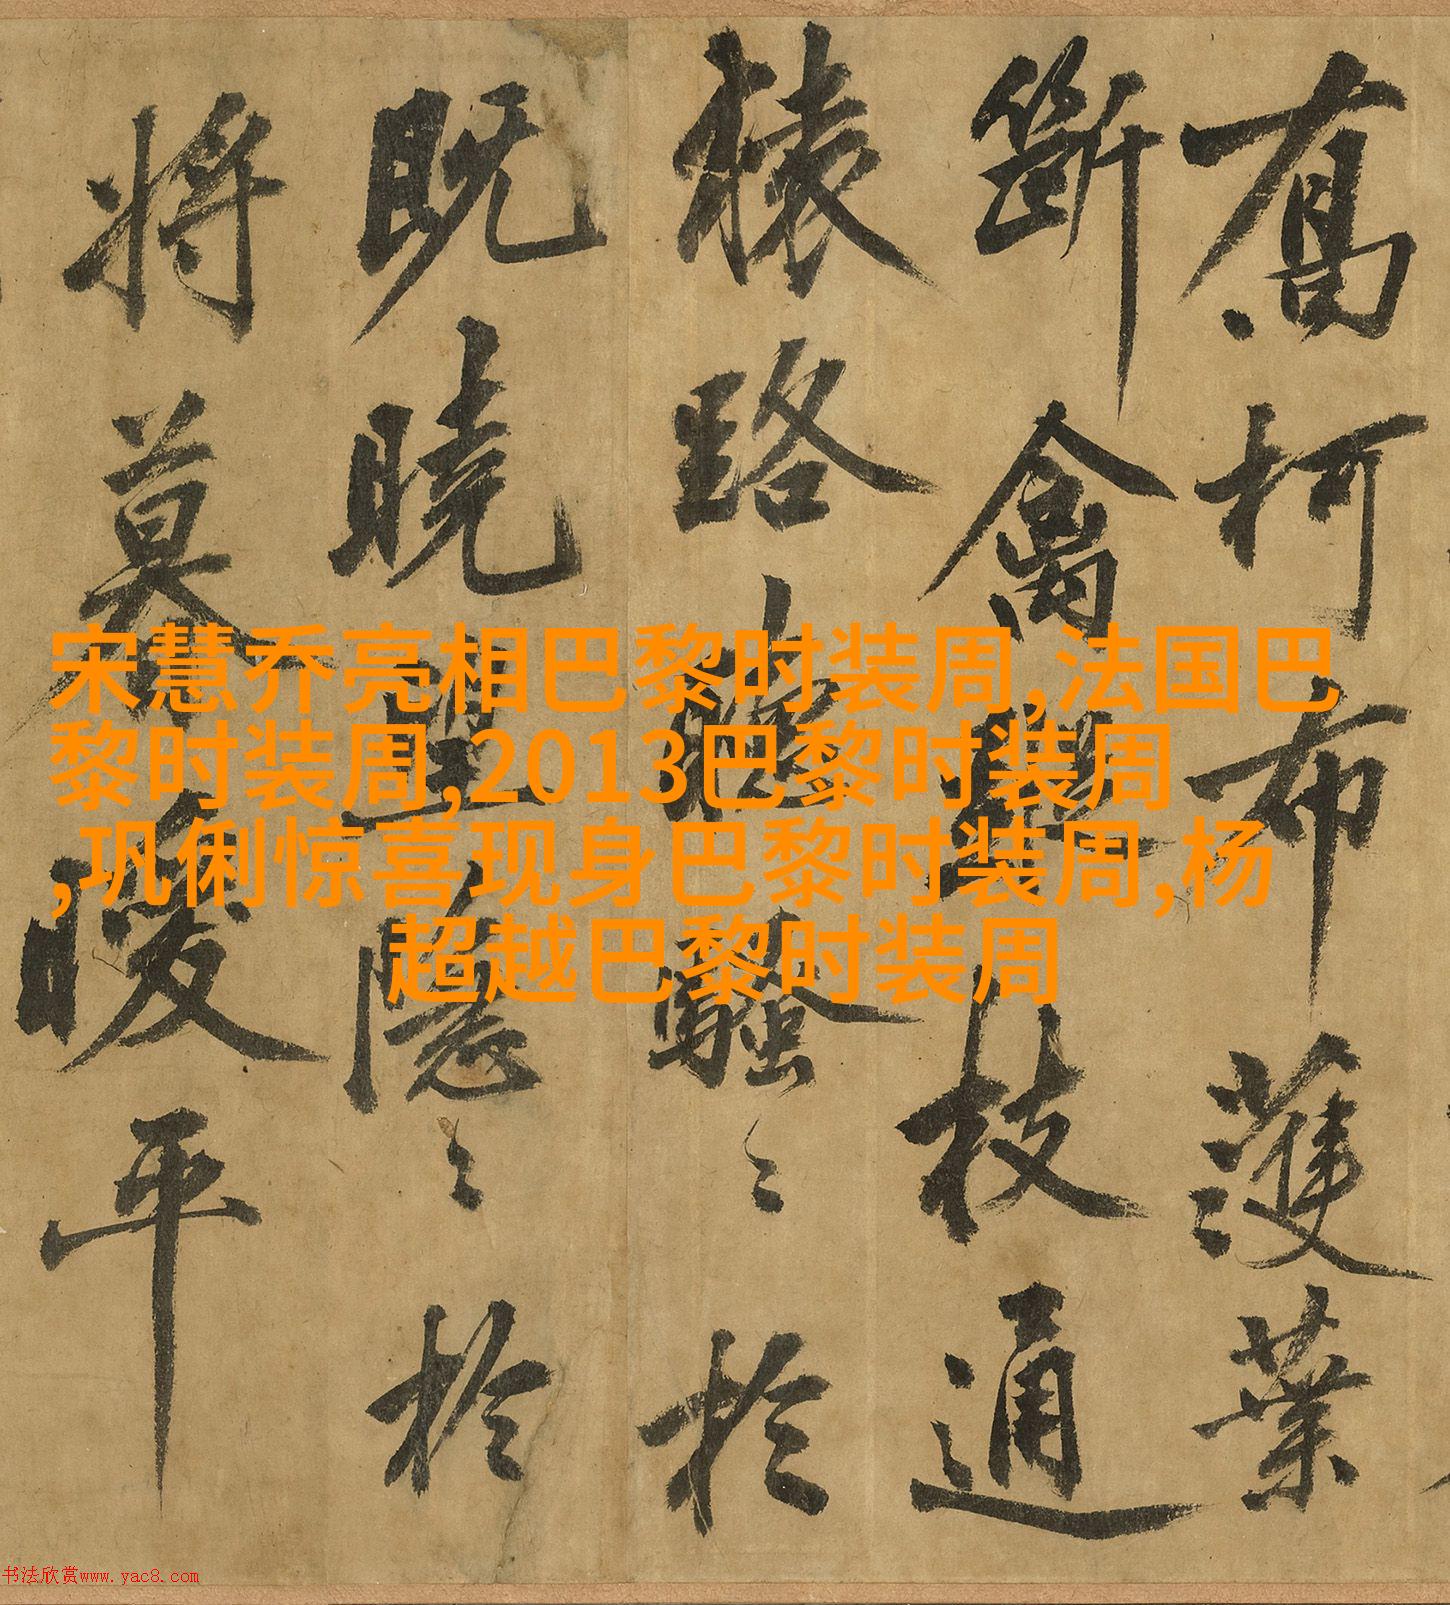 喬柯布濩葉
斷禽枝通
猿路騷〻於
既曉隱〻於
將莫曖平
宋慧乔亮相巴黎时装周,法国巴
黎时装周,2013巴黎时装周
,巩俐惊喜现身巴黎时装周,杨
超越巴黎时装周
书法欣赏www.yac8.com